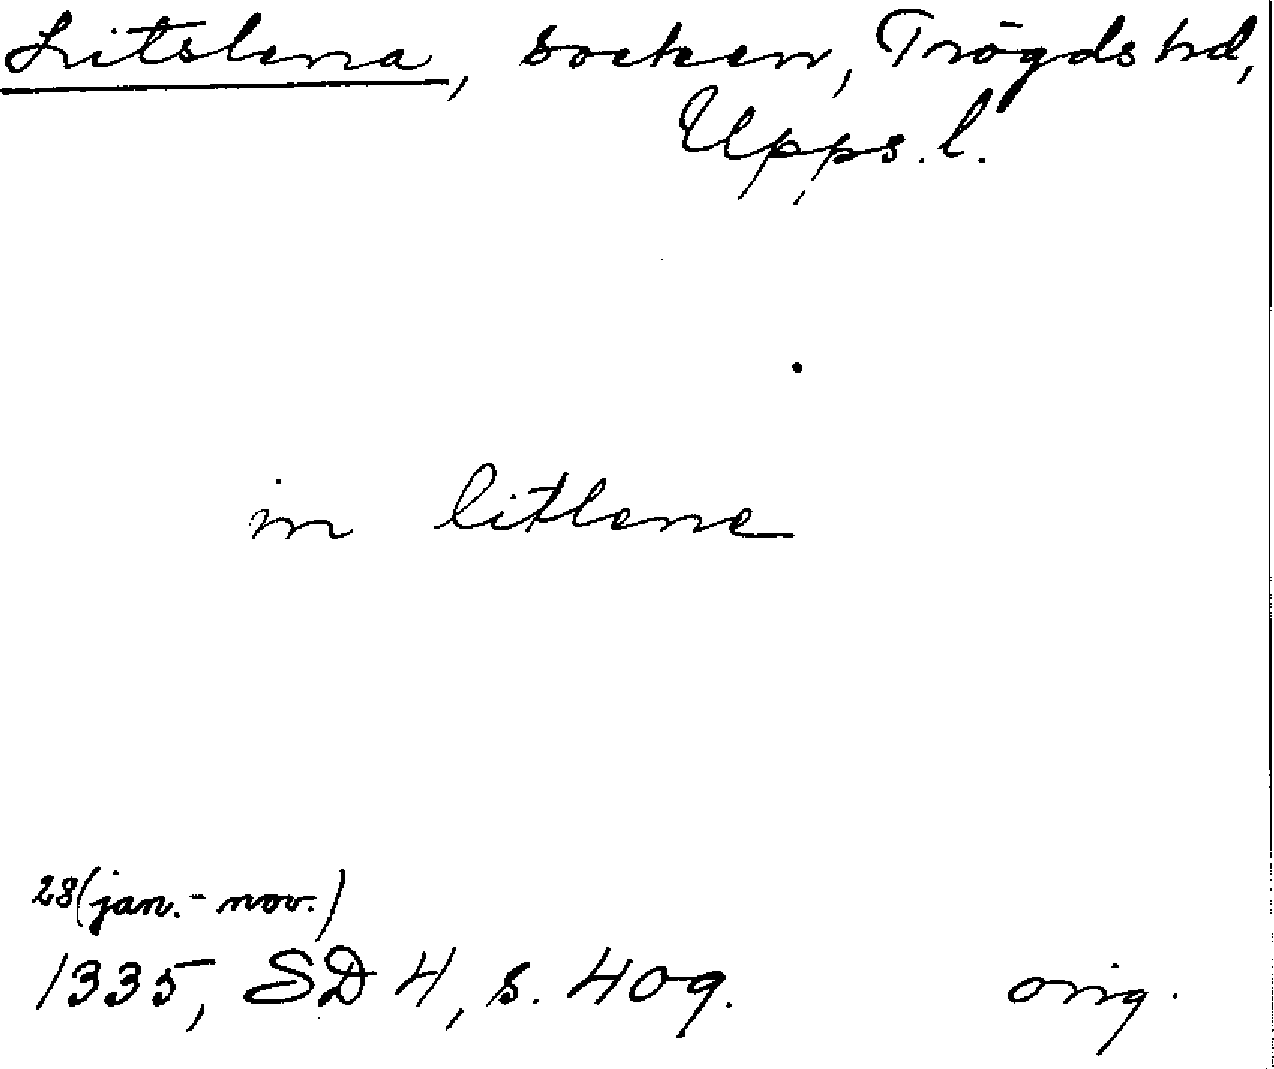 Litslena, socken, Trögds hd,
Upps. l.
in litlene
28 (jan. - nov.)
1335, SD 4, s. 409. orig.